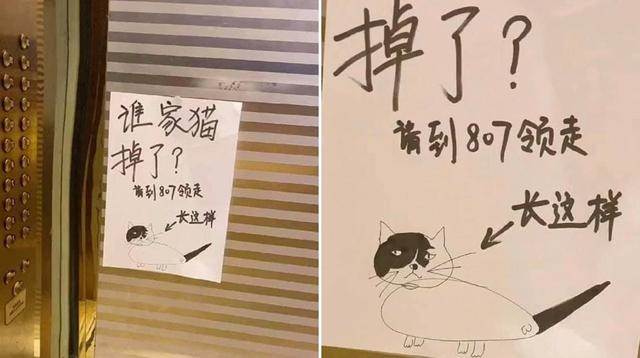 谁家猫
掉了？
请到807领走
长这样
掉了？
请到807领走
长这样